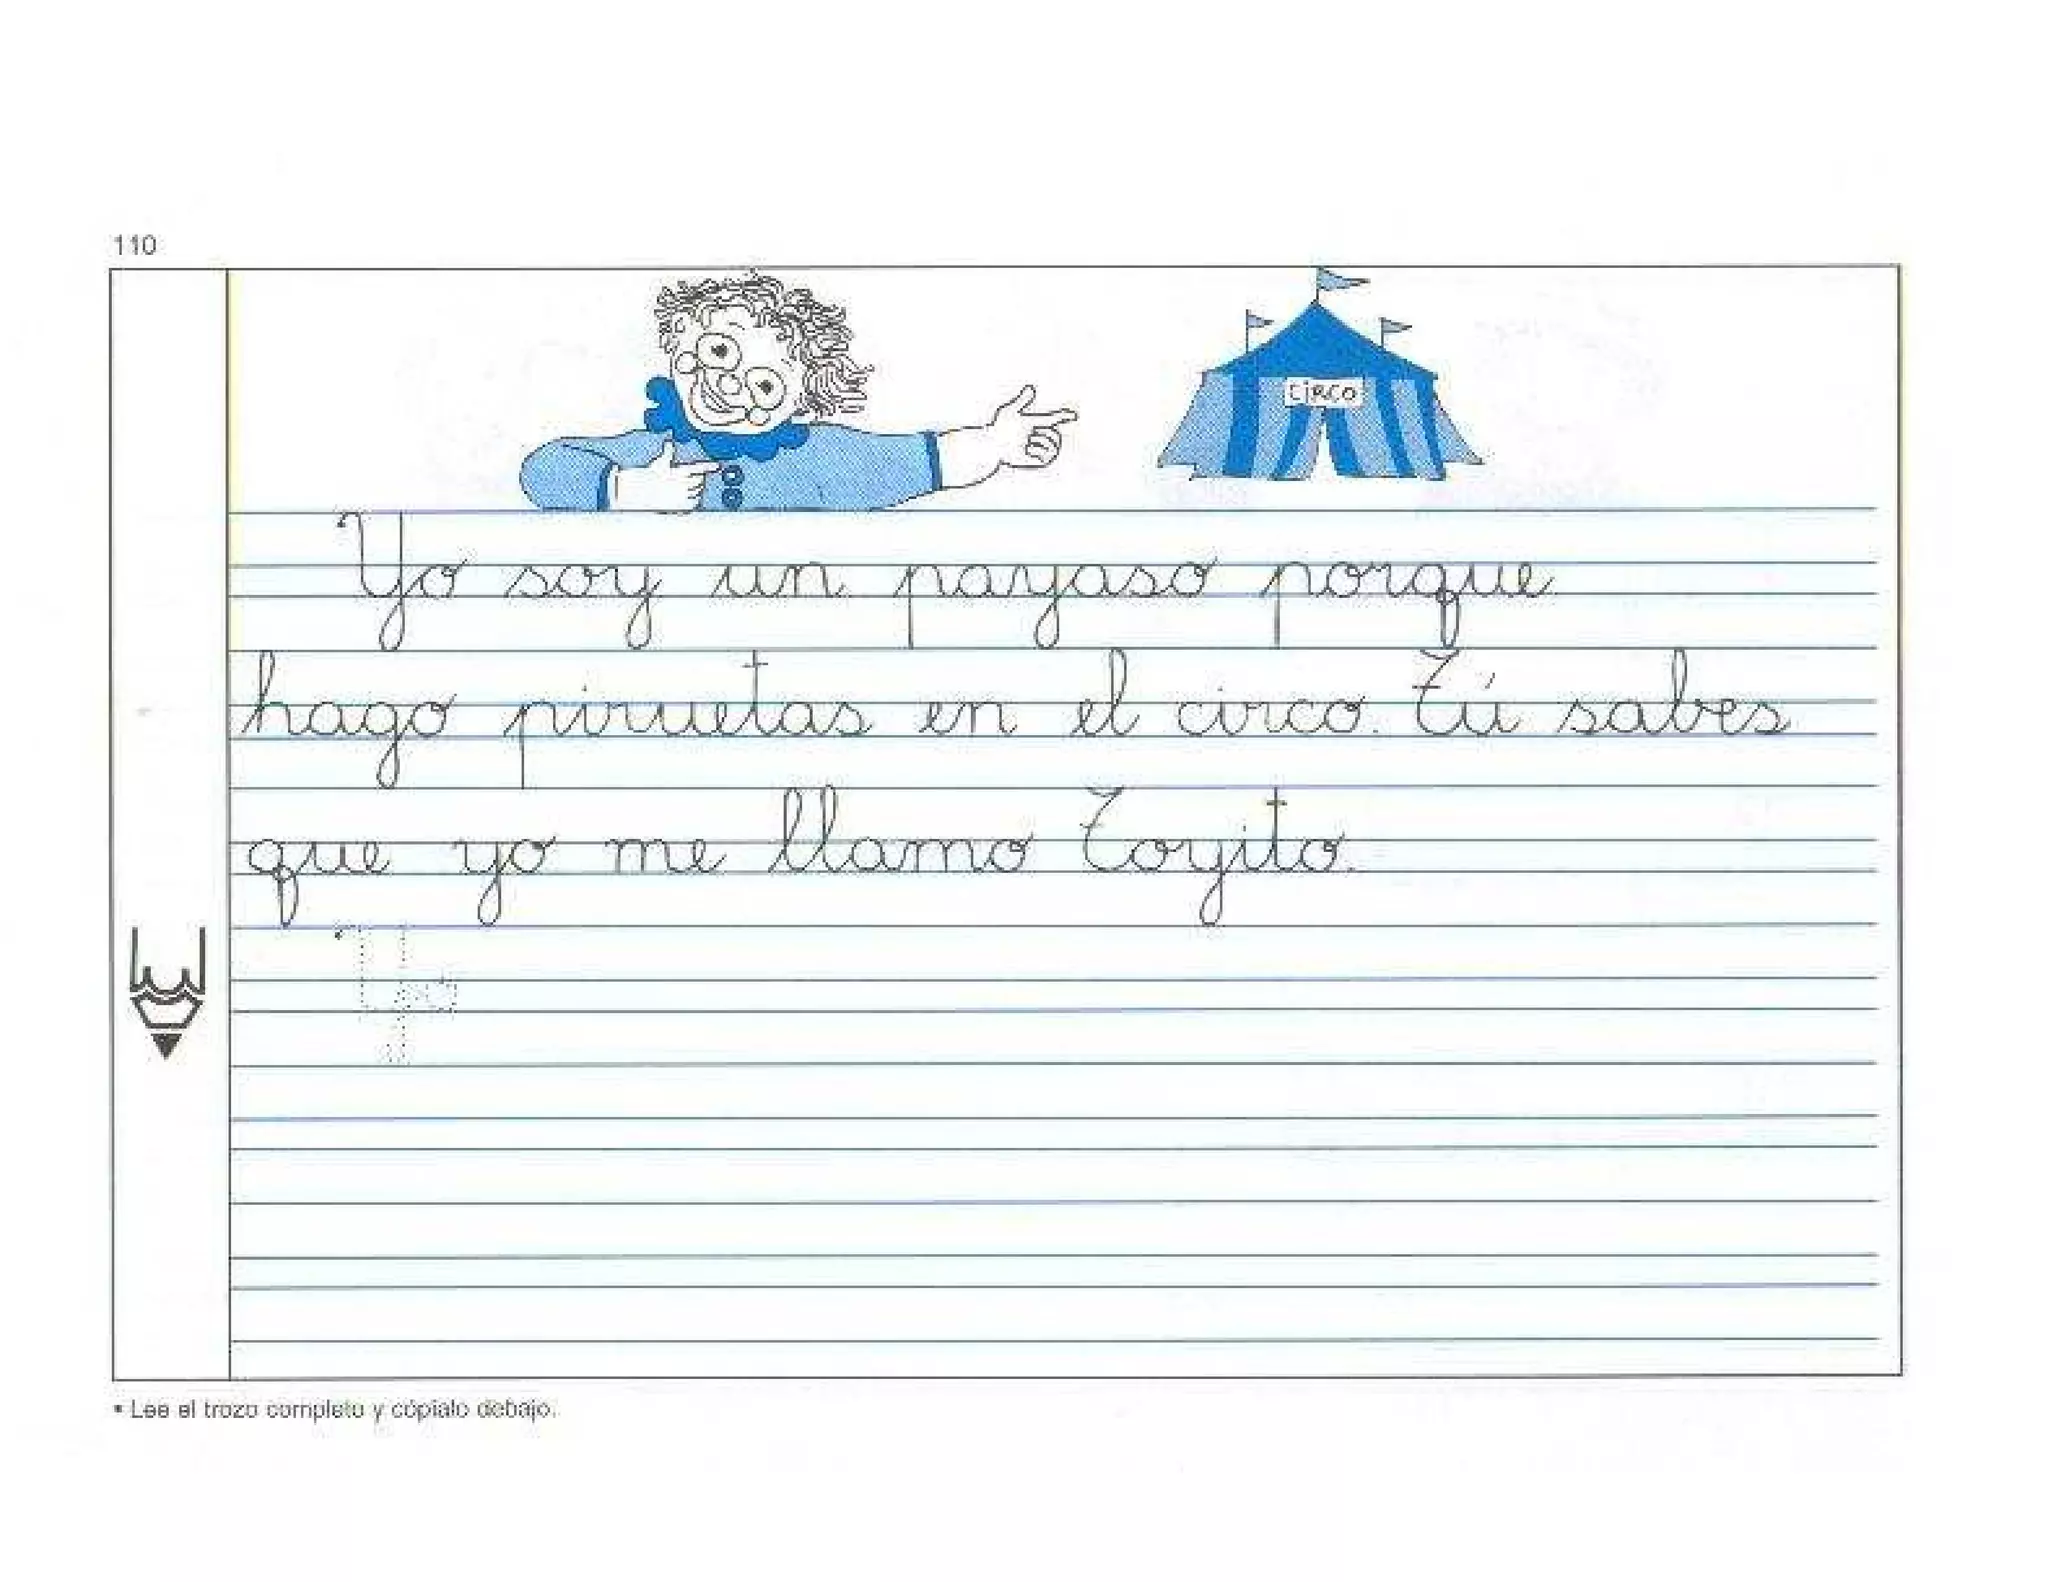 110
CiRCO
Yo soy un payaso porque
hago piruetas en el circo. Tú sabes
que yo me llamo Toyito.
Yo
• Lee el trozo completo y cópialo debajo.